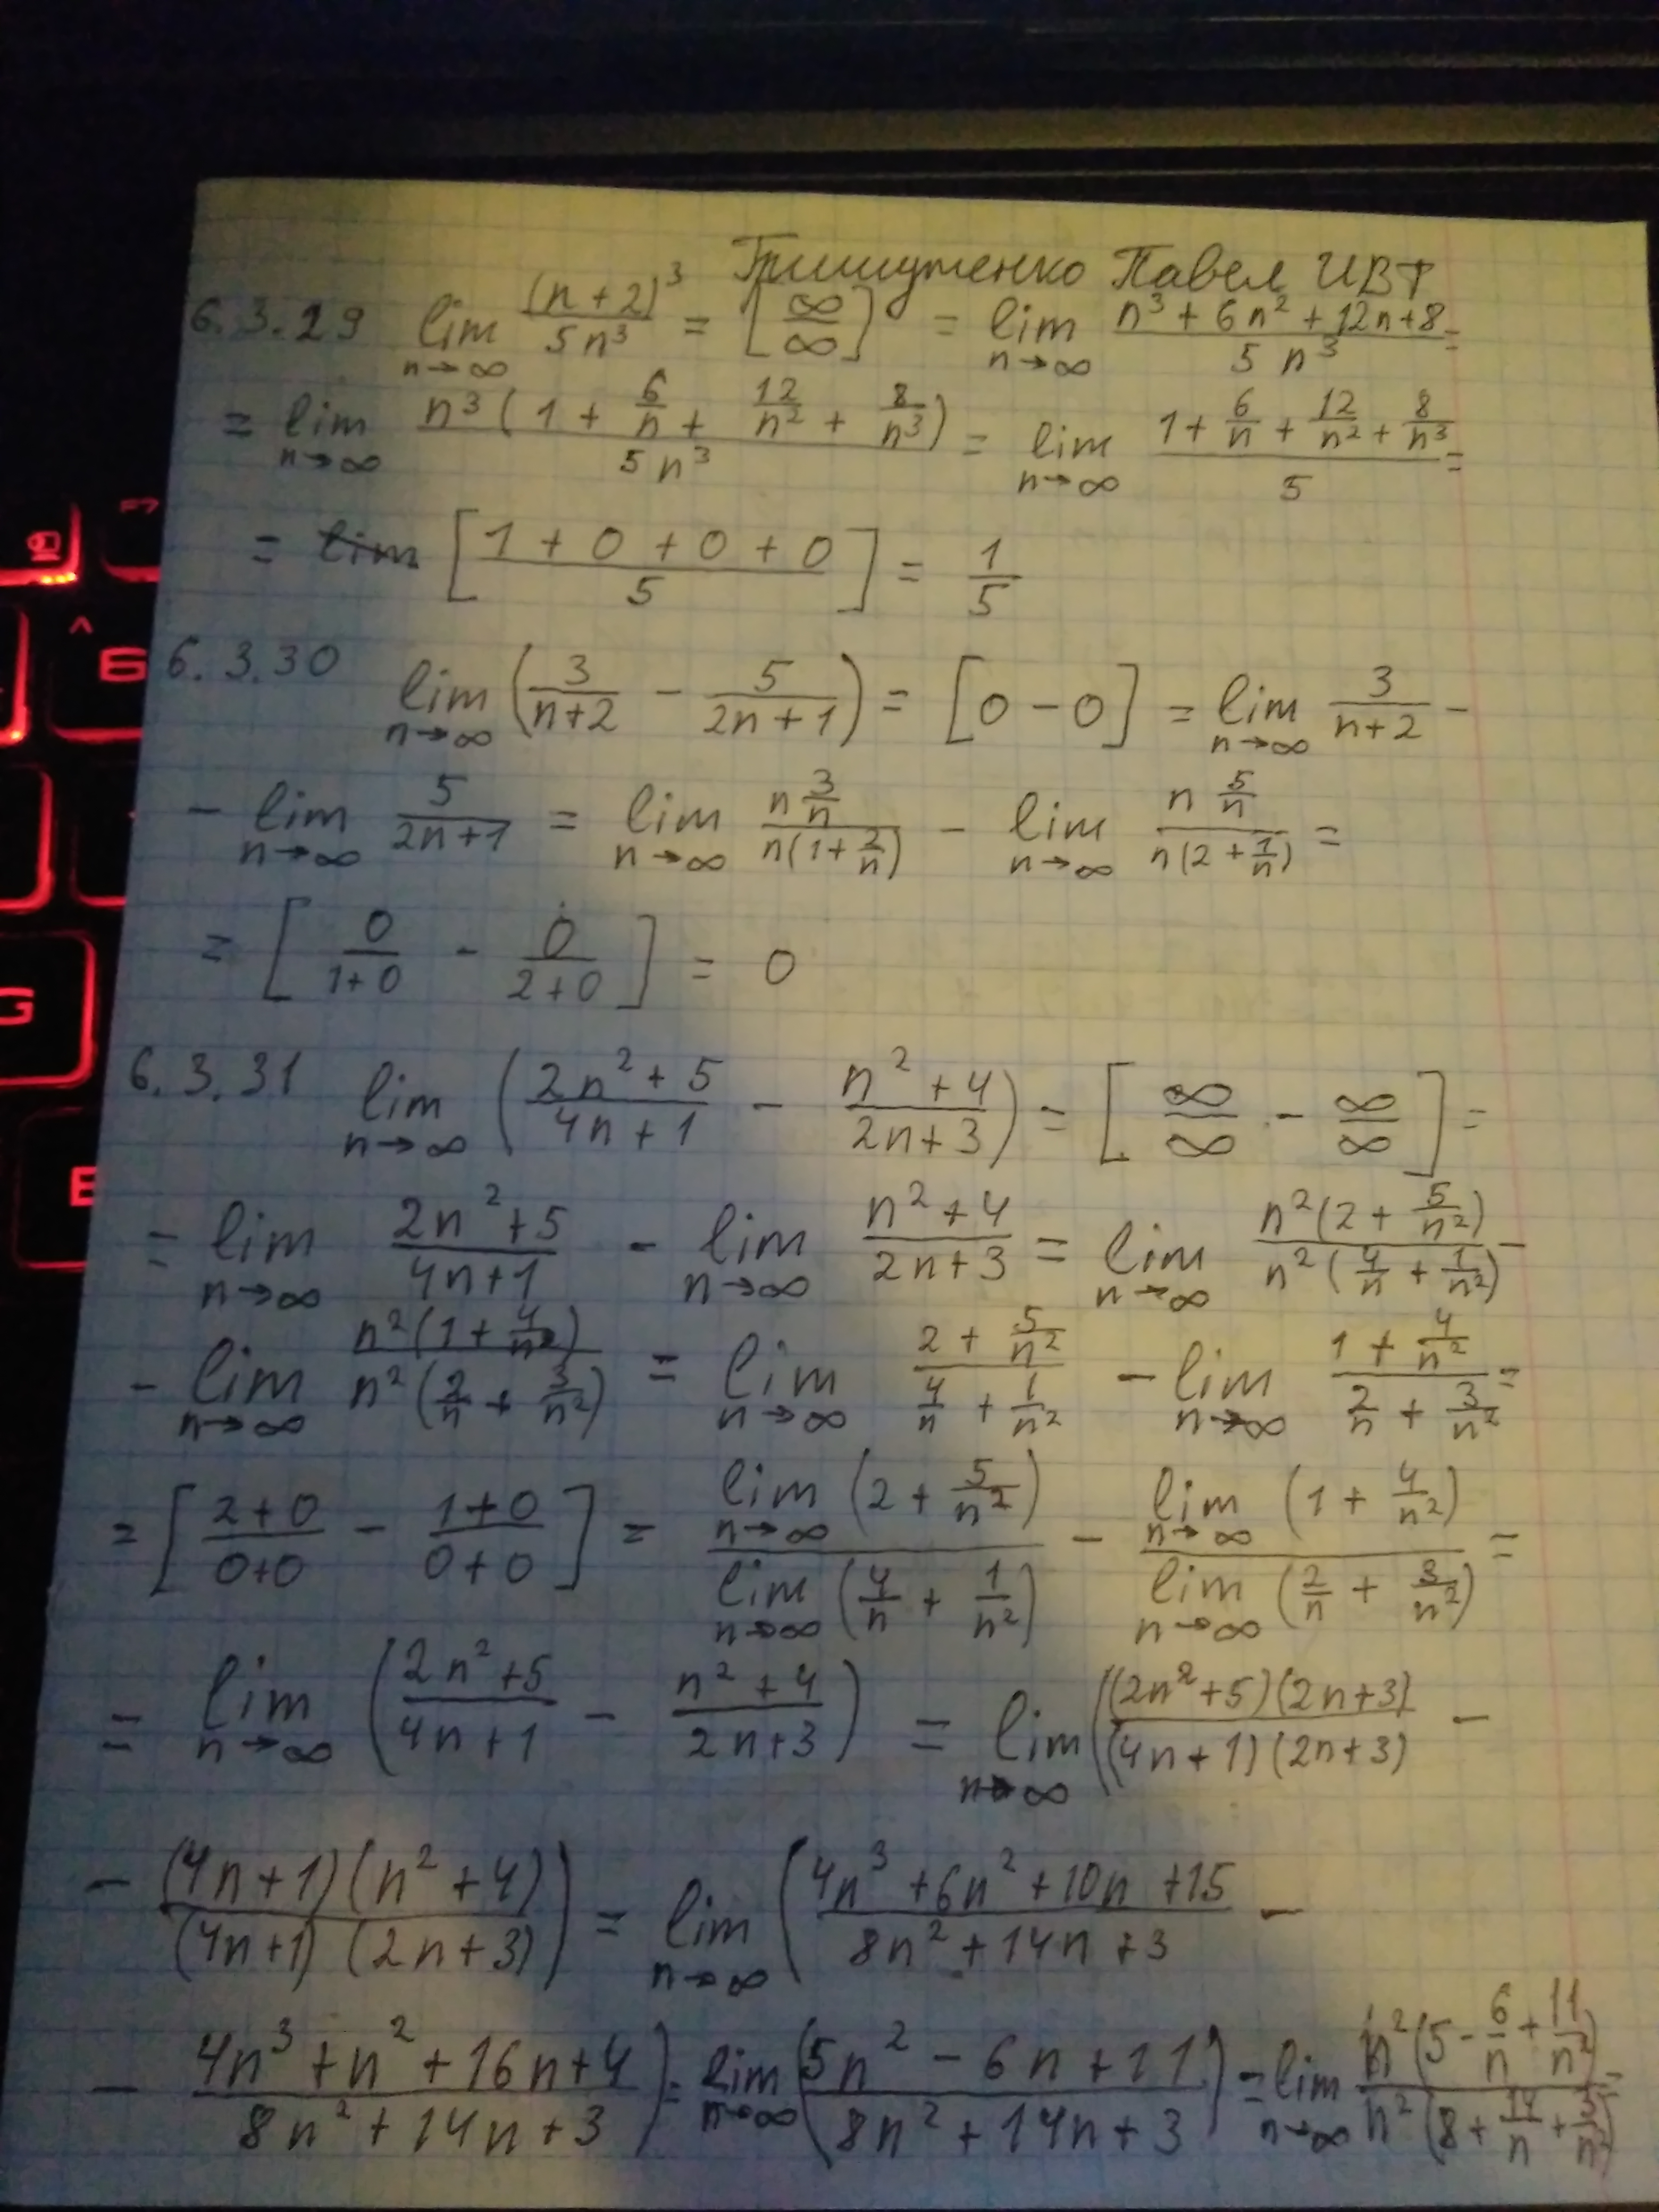 Гришутенко Павел ИВТ
6.3.29 lim_{n→∞} (n+2)^3/(5n^3) = [∞/∞] = lim_{n→∞} (n^3 + 6n^2 + 12n + 8)/(5n^3) =
= lim_{n→∞} n^3(1 + 6/n + 12/n^2 + 8/n^3)/(5n^3) = lim_{n→∞} (1 + 6/n + 12/n^2 + 8/n^3)/5 =
= [(1 + 0 + 0 + 0)/5] = 1/5
6.3.30 lim_{n→∞} (3/(n+2) - 5/(2n+1)) = [0 - 0] = lim_{n→∞} 3/(n+2) -
- lim_{n→∞} 5/(2n+1) = lim_{n→∞} (n 3/n)/(n(1 + 2/n)) - lim_{n→∞} (n 5/n)/(n(2 + 1/n)) =
= [0/(1+0) - 0/(2+0)] = 0
6.3.31 lim_{n→∞} ((2n^2 + 5)/(4n + 1) - (n^2 + 4)/(2n + 3)) = [∞/∞ - ∞/∞] =
= lim_{n→∞} (2n^2 + 5)/(4n + 1) - lim_{n→∞} (n^2 + 4)/(2n + 3) = lim_{n→∞} n^2(2 + 5/n^2)/(n^2(4/n + 1/n^2)) -
- lim_{n→∞} n^2(1 + 4/n^2)/(n^2(2/n + 3/n^2)) = lim_{n→∞} (2 + 5/n^2)/(4/n + 1/n^2) - lim_{n→∞} (1 + 4/n^2)/(2/n + 3/n^2) =
= [(2+0)/(0+0) - (1+0)/(0+0)] = lim_{n→∞} (2 + 5/n^2)/lim_{n→∞} (4/n + 1/n^2) - lim_{n→∞} (1 + 4/n^2)/lim_{n→∞} (2/n + 3/n^2) =
= lim_{n→∞} ((2n^2 + 5)/(4n + 1) - (n^2 + 4)/(2n + 3)) = lim_{n→∞} ((2n^2 + 5)(2n + 3)/((4n + 1)(2n + 3)) -
- (4n + 1)(n^2 + 4)/((4n + 1)(2n + 3))) = lim_{n→∞} ((4n^3 + 6n^2 + 10n + 15)/(8n^2 + 14n + 3) -
- (4n^3 + n^2 + 16n + 4)/(8n^2 + 14n + 3)) = lim_{n→∞} ((5n^2 - 6n + 11)/(8n^2 + 14n + 3)) = lim_{n→∞} n^2(5 - 6/n + 11/n^2)/(n^2(8 + 14/n + 3/n^2)) =
F7
Б
G